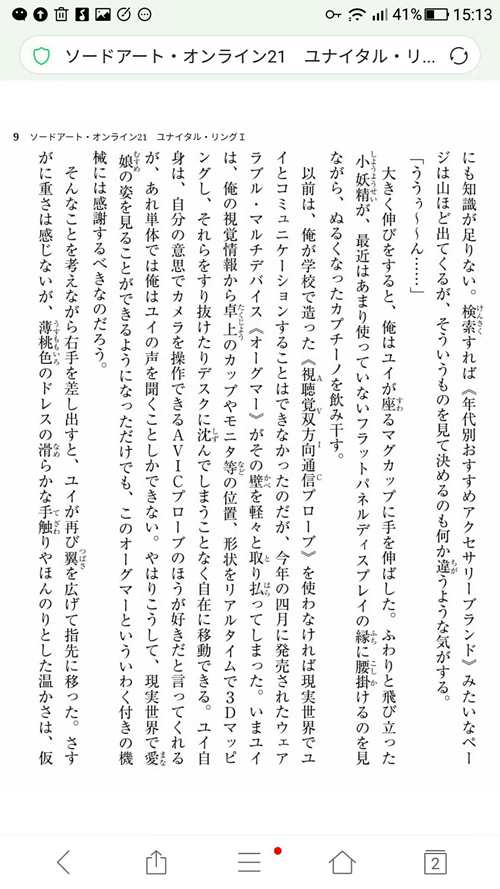 41% 15:13
ソードアート・オンライン21　ユナイタル・リ...
9 ソードアート・オンライン21　ユナイタル・リングⅠ
にも知識が足りない。検索すれば《年代別おすすめアクセサリーブランド》みたいなペー
ジは山ほど出てくるが、そういうものを見て決めるのも何か違うような気がする。
「ううぅ～～ん……」
大きく伸びをすると、俺はユイが座るマグカップに手を伸ばした。ふわりと飛び立った
小妖精が、最近はあまり使っていないフラットパネルディスプレイの縁に腰掛けるのを見
ながら、ぬるくなったカプチーノを飲み干す。
以前は、俺が学校で造った《視聴覚双方向通信プローブ》を使わなければ現実世界でユ
イとコミュニケーションすることはできなかったのだが、今年の四月に発売されたウェア
ラブル・マルチデバイス《オーグマー》がその壁を軽々と取り払ってしまった。いまユイ
は、俺の視覚情報から卓上のカップやモニタ等の位置、形状をリアルタイムで３Ｄマッピ
ングし、それらをすり抜けたりデスクに沈んでしまうことなく自在に移動できる。ユイ自
身は、自分の意思でカメラを操作できるＡＶＩＣプローブのほうが好きだと言ってくれる
が、あれ単体では俺はユイの声を聞くことしかできない。やはりこうして、現実世界で愛
娘の姿を見ることができるようになっただけでも、このオーグマーといういわく付きの機
械には感謝するべきなのだろう。
そんなことを考えながら右手を差し出すと、ユイが再び翼を広げて指先に移った。さす
がに重さは感じないが、薄桃色のドレスの滑らかな手触りやほんのりとした温かさは、仮
2